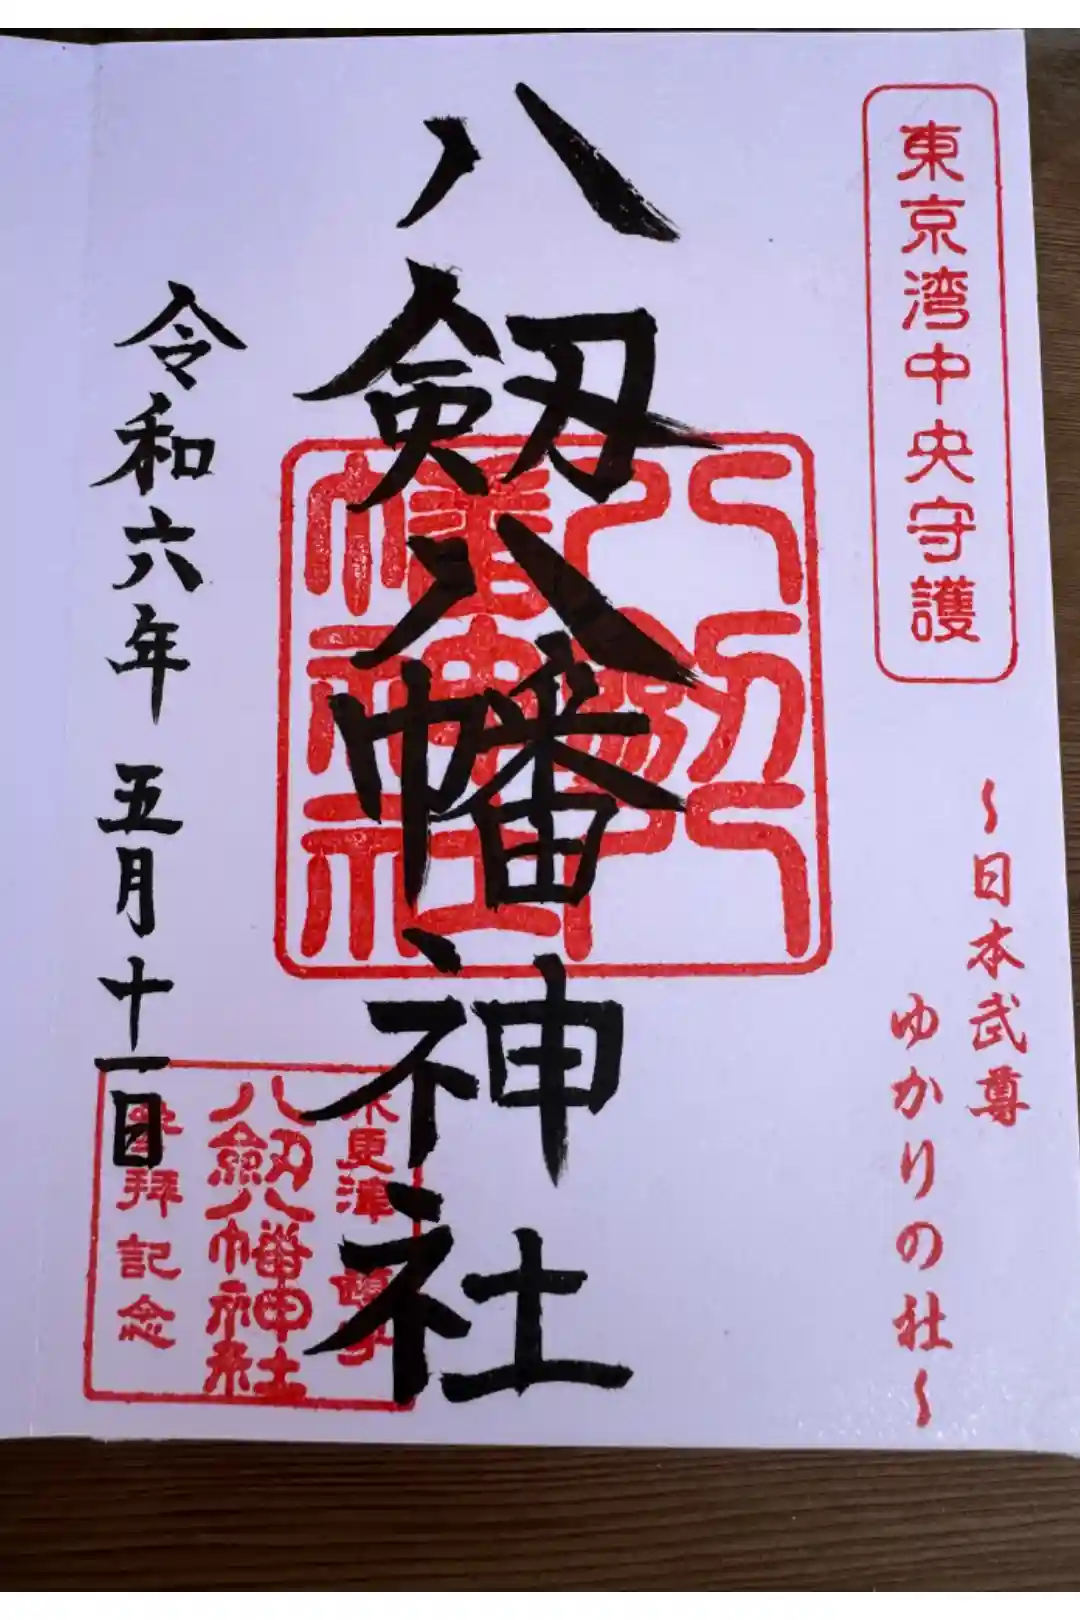 東京湾中央守護
〜日本武尊
ゆかりの社〜
八劔八幡神社
令和六年 五月十一日
八劔八幡神社
八劔八幡神社
参拝記念